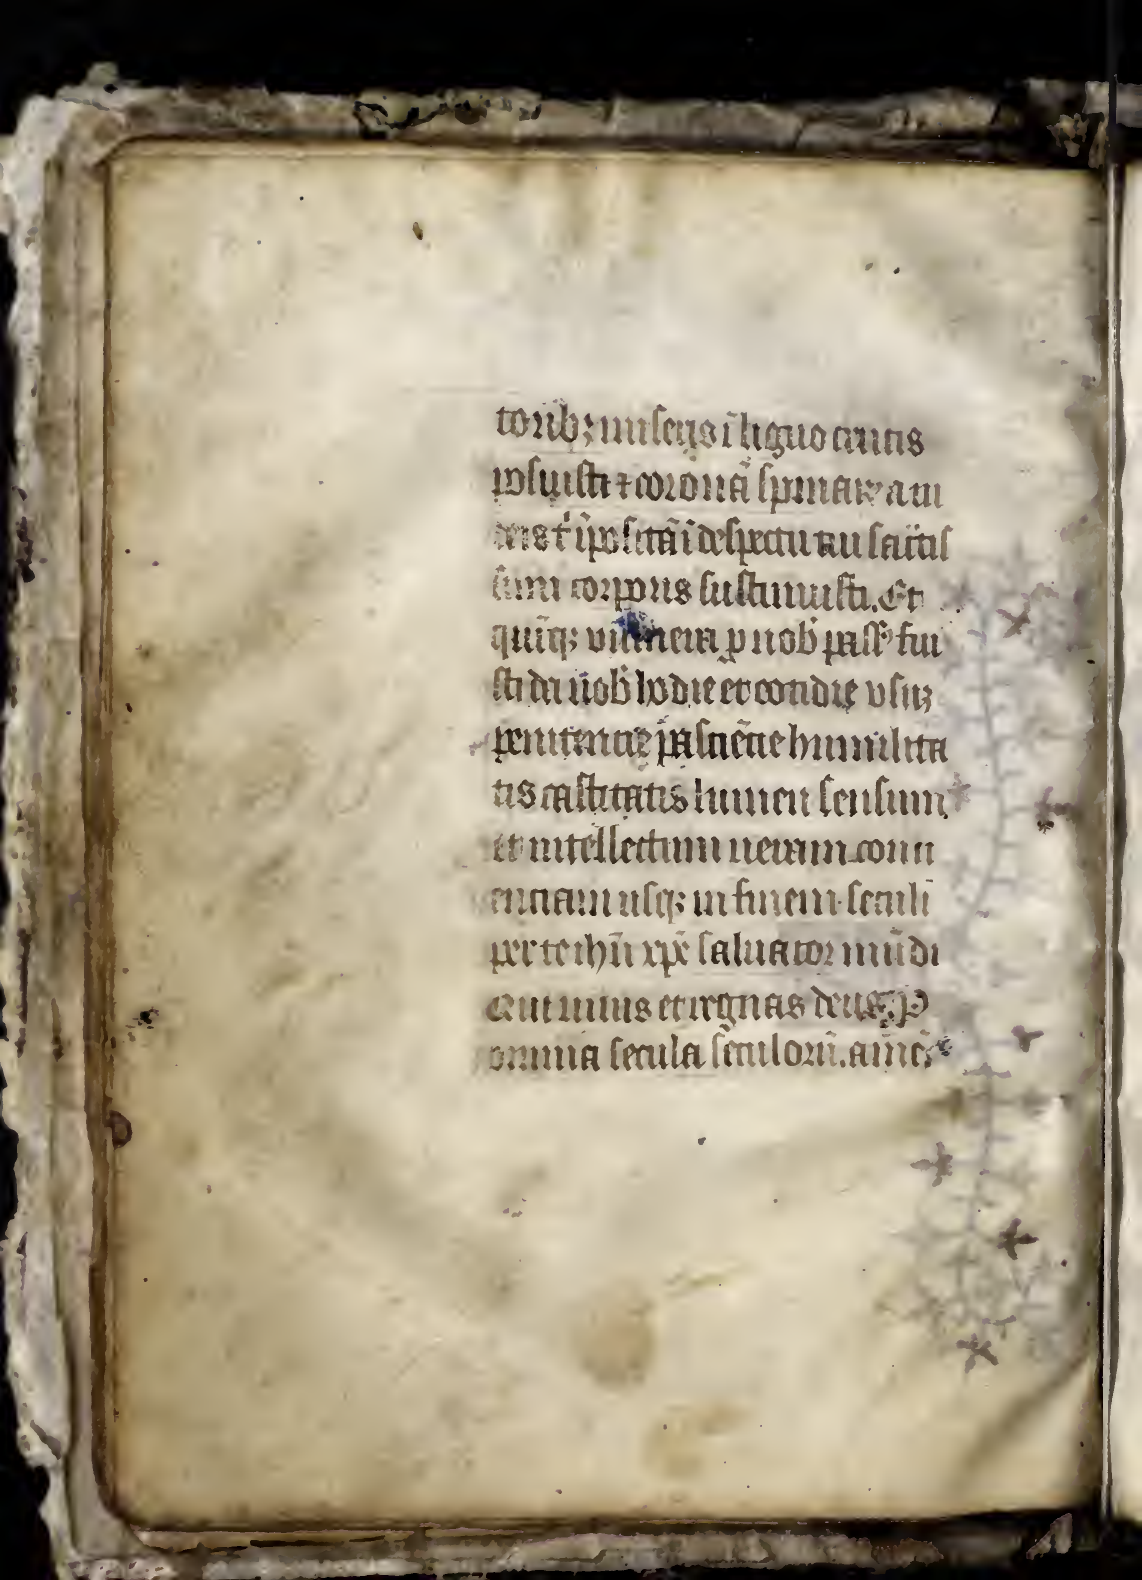 toribꝫ miseris ī ligno crucis
posuisti ⁊ coronā spinaꝝ am
īpositā ī despectu tui sāctis
simi corporis sustinuisti. Et
quīqꝫ vulnera ꝓ nob̄ passꝰ fui
sti da nob̄ hodie et cotidie vsuꝫ
penitencie pasciēcie humilita
tis castitatis lumen sensum
et intellectum ueram consci
enciam usqꝫ in finem seculi
per te ihū xp̄e saluator mūdi
Qui uiuis et regnas deus. P
omnia secula seculorū. amē